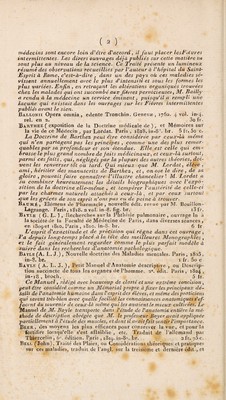 ( 2 )
médecins sont encore loin d'être d'accord, il faut placer les Fièvres
intermittentes. Les divers ouvrages déjà publiés sur cette matière ne
sont plus au niveau de la science. Ce Traité présente un lumineux
résumé des observations recueillies par l'auteur à l'hôpital du Saint-
Esprit à Rome, c'est-à-dire, dans un des pays où ces maladies sé-
vissent annuellement avec le plus d'intensité et sous les formes les
plus variées. Enfin, en retraçant les altérations organiques trouvées
dans les malades qui ont succombé aux fièvres pernicieuses, M. Bailly
a rendu à la médecine un service éminent, puisqu'il a rempli une
lacune qui existait dans les ouvrages sur les Fièvres intermittentes
publiés avant le sien.
BALLONII Opera omnia, edente Tronchin. Genevæ, 1762, 3 vol. in-4,
rel. en 2. 30 fr.
BARTHEZ ( exposition de la Doctrine médicale de ), et Mémoires sur
la vie de ce Médecin, par Lordat. Paris, 1818, in-8°. br. 6 fr. 50 c.
La Doctrine de Barthez peut être considérée par ceux-là même
qui n'en partagent pas les principes, comme une des plus remar-
quables par sa profondeur et son étendue. Elle est de celles qui em-
brassent le plus grand nombre de faits médicinaux, et ceux qui négligent
parmi ces faits, qui, négligés par la plupart des autres chefs, doi-
vent les renverser tôt ou tard. Qui mieux que M. Lordat, élève,
ami, héritier des manuscrits de Barthez, et, on ose le dire, de sa
gloire, pouvait faire connaître l'illustre chancelier ? M. Lordat a
su combiner heureusement l'intérêt biographique avec l'expo-
sition de la doctrine elle-même, et tempérer l'austérité de celle-ci
par les charmes naturels attachés à ceux-là, et par ceux surtout
que les grâces de son esprit n'ont pas eu de peine à trouver.
BAUMÉ, Élémens de Pharmacie, nouvelle édit. revue par M. Bouillon-
Lagrange. Paris, 1818, 2 vol. in-8.
BAYLE ( G. L. ), Recherches sur la Phthisie pulmonaire, ouvrage lu à
la société de la Faculté de Médecine de Paris, dans diverses séances,
en 1809 et 1810. Paris, 1810, in-8. br. 6 fr.
L'esprit d'exactitude et de précision qui règne dans cet ouvrage,
l'a depuis longtemps placé au rang de nos meilleures Monographies,
et le fait généralement regarder comme le plus parfait modèle à
suivre dans les recherches d'anatomie pathologique.
BAYLE (A. L. J.), Nouvelle doctrine des Maladies mentales. Paris, 1825,
in-8. br.
BAYLE ( A. L. J. ), Petit Manuel d'Anatomie descriptive, ou Descrip-
tion succincte de tous les organes de l'homme. 2e. édit. Paris, 1824,
in-18., broch.
Ce Manuel, rédigé avec beaucoup de clarté et une extrême concision,
peut être considéré comme un Mémorial propre à fixer les principaux dé-
tails de l'anatomie humaine dans l'esprit des élèves, et même des praticiens
qui savent très bien avec quelle facilité les connaissances anatomiques s'ef-
facent du souvenir de ceux-là même qui les avaient le mieux cultivées. Le
Manuel de M. Bayle transporte dans l'étude de l'anatomie entière la mé-
thode de description abrégée que M. le professeur Boyer avait appliquée
partiellement à l'étude des muscles, et dont il avait fait sentir l'importance.
BEER, des moyens les plus efficaces pour conserver la vue, et pour la
fortifier lorsqu'elle s'est affaiblie, etc. Traduit de l'allemand par
Thiercelin, 6e. édition. Paris, 1819, in-8. br.
BELL (John), Traité des Plaies, ou Considérations théoriques et pratiques
sur ces maladies, traduit de l'angl. sur la troisième et dernière édit., et